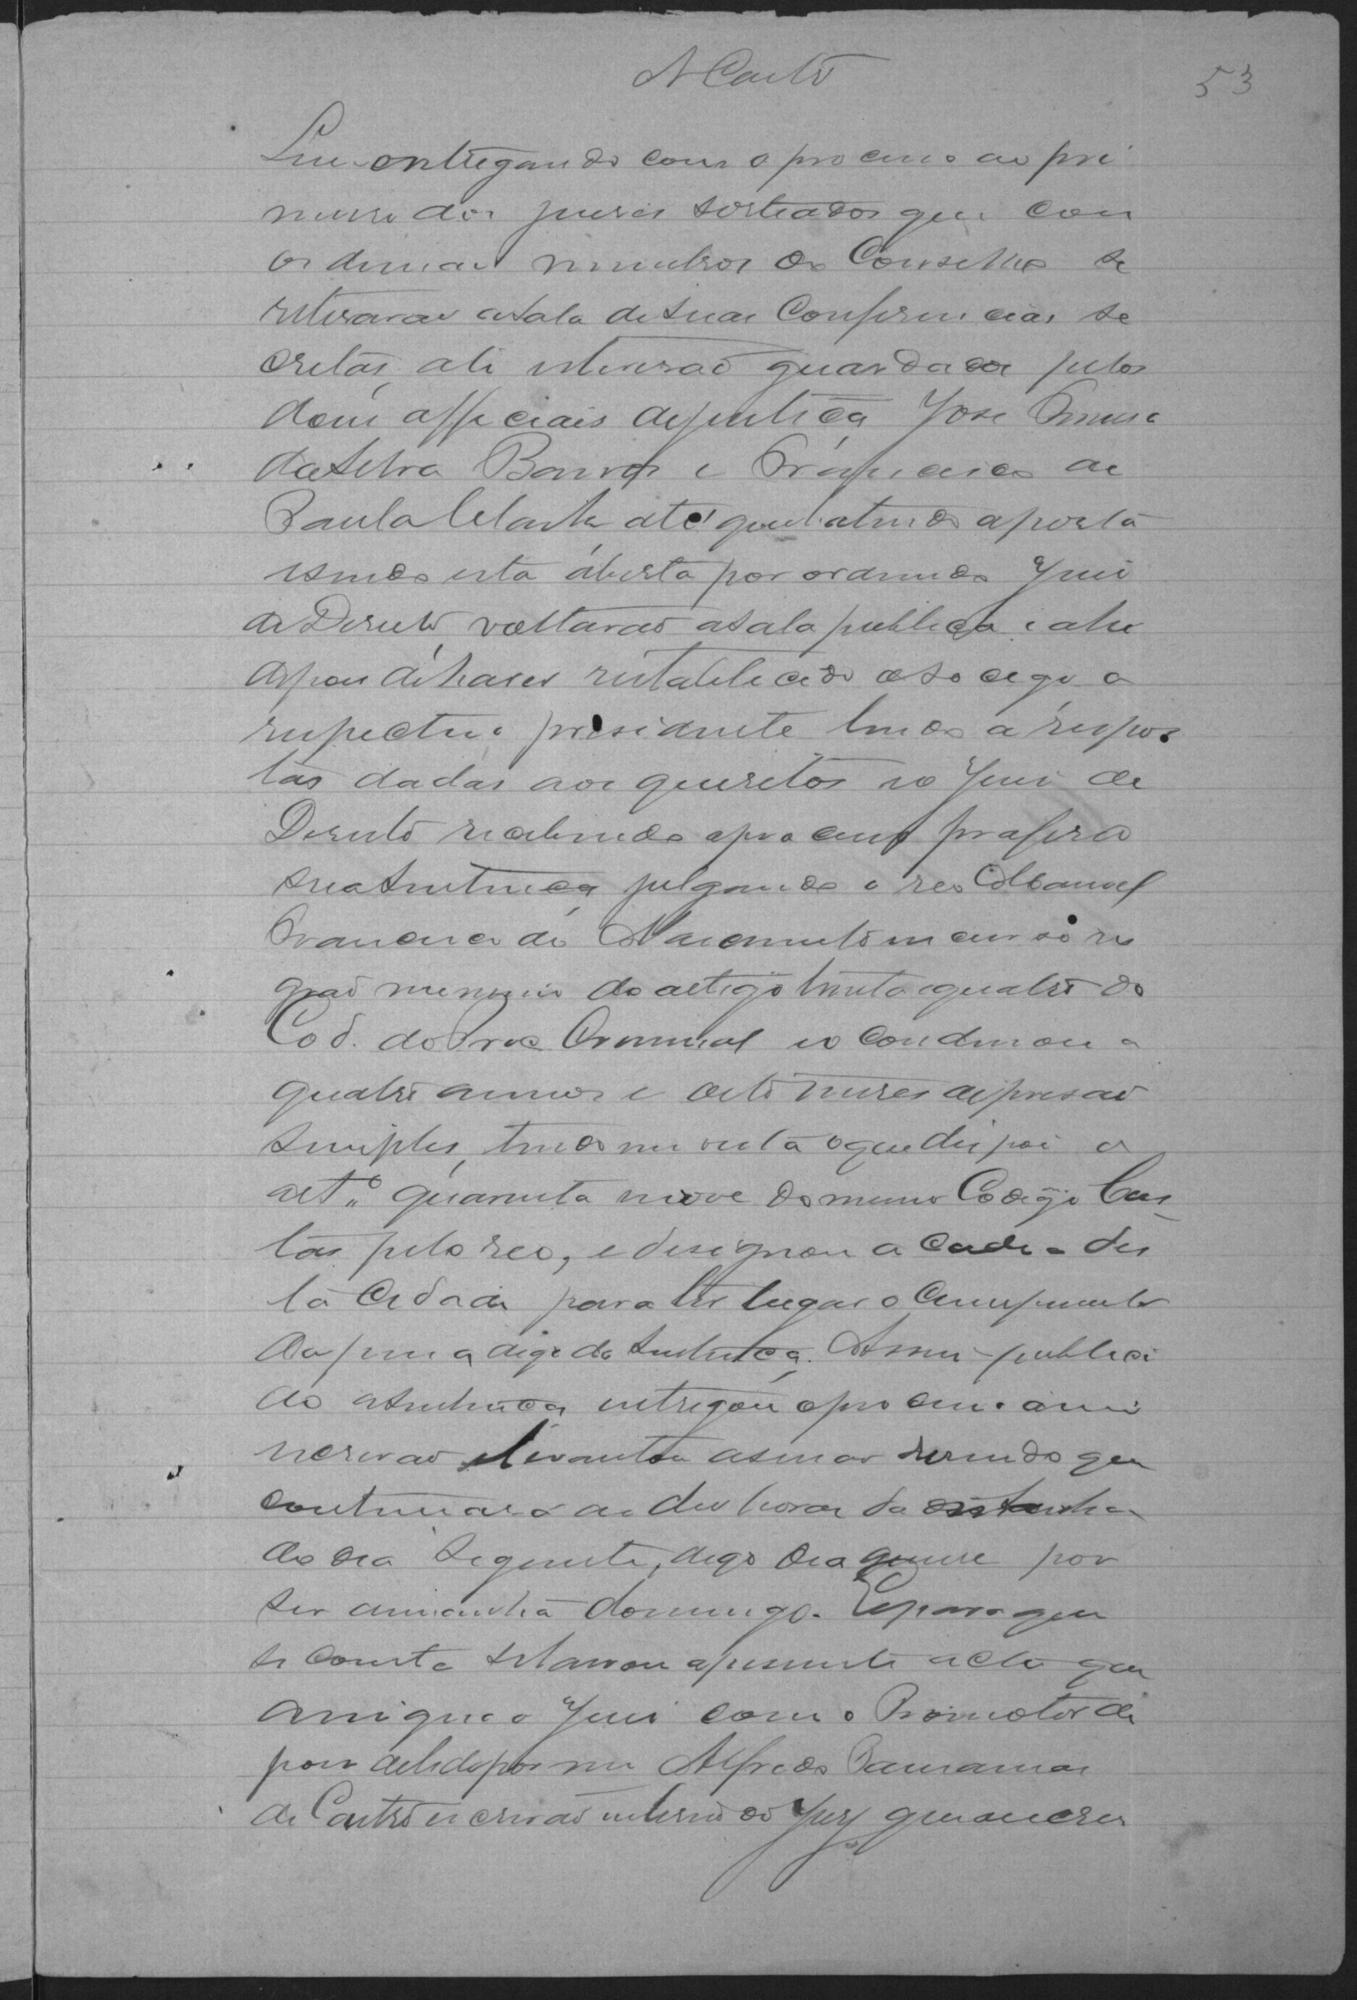 A Castro
53
Lei entregando com o processo ao pri
meiro dos jurês sorteados que com
os demais membros do Conselho se
retirarao a sala de suas Conferencias se
cretas, ali estiverao guardados pelos
dous officiais de justiça José
da Silva Barros e Francisco de
Paula até que batendo a porta
e sendo esta aberta por ordem do Juis
de Direito, voltarao a sala publica e ahi
depois de haver restabelecido o socego o
respectivo presidente lendo a respos
tas dadas aos quesitos e o Juis de
Direito recebendo o processo proferio
sua sentença julgando o reo Manoel
Francisco do Nascimento incurso no
grao do artigo trinta e quatro do
Cod. do Proc Criminal e o condenou a
quatro annos e oito meses de prisao
simples, tendo em vista o que dispoi o
art.º quarenta nove do mesmo Codigo Cus
tas pelo reo, e designou a Cadea des
ta Cidade para ter lugar o Cumprimento
da pena digo da sentença. Assim publica
do a sentença entregou o processo a mim
escrivao e levantou a secao dizendo que
continuará as des horas da manhã
do dia seguinte, digo dia quinse por
ser amanhã domingo. E para que
se conste se lavrou a presente acta que
assigna o Juis com o Promotor de
pois de lida por mim Alfredo
de Castro escrivão interino do Jury que o escrevi